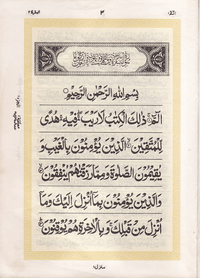 البقرة ٢
٣
بِسْمِ اللهِ الرَّحْمٰنِ الرَّحِيْمِ
الٓمّٓ ذٰلِكَ الْكِتٰبُ لَا رَيْبَ فِيْهِ هُدًى
لِّلْمُتَّقِيْنَ الَّذِيْنَ يُؤْمِنُوْنَ بِالْغَيْبِ وَ
يُقِيْمُوْنَ الصَّلٰوةَ وَمِمَّا رَزَقْنٰهُمْ يُنْفِقُوْنَ
وَالَّذِيْنَ يُؤْمِنُوْنَ بِمَآ اُنْزِلَ اِلَيْكَ وَمَآ
اُنْزِلَ مِنْ قَبْلِكَ وَبِالْاٰخِرَةِ هُمْ يُوْقِنُوْنَ